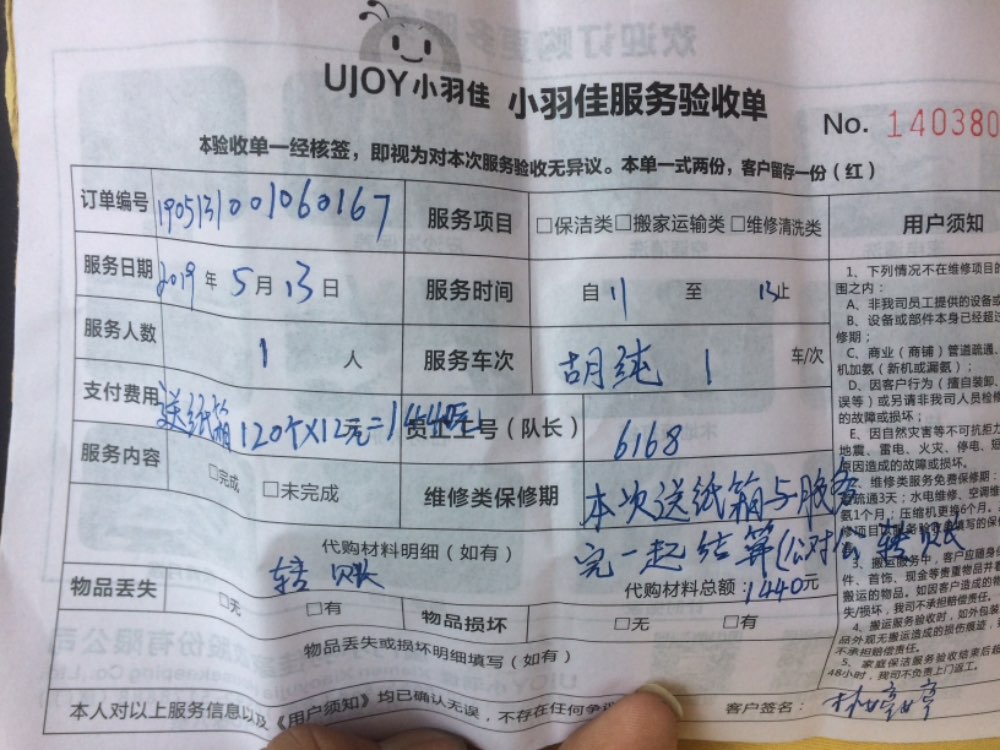 UJOY小羽佳 小羽佳服务验收单
No. 140380
本验收单一经核签，即视为对本次服务验收无异议。本单一式两份，客户留存一份（红）
订单编号 1905131001060167 服务项目 □保洁类□搬家运输类□维修清洗类 用户须知
服务日期 2019年5月13日 服务时间 自11至13止
服务人数 1人 服务车次 胡纯 1 车/次
支付费用 送纸箱120个X12元=1440元 员工工号（队长） 6168
服务内容 □完成 □未完成 维修类保修期 本次送纸箱与服务
完一起结算(公对公转账
代购材料明细（如有） 转账 代购材料总额：1440元
物品丢失 □无 □有 物品损坏 □无 □有
物品丢失或损坏明细填写（如有）
本人对以上服务信息以及《用户须知》均已确认无误，不存在任何争议 客户签名：
1、下列情况不在维修项目的
围之内：
A、非我司员工提供的设备或
B、设备或部件本身已经超过
修期；
C、商业（商铺）管道疏通、
机加氨（新机或漏氨）；
D、因客户行为（擅自装卸、
误等）或另请非我司人员检修
的故障或损坏；
E、因自然灾害等不可抗拒力
地震、雷电、火灾、停电、短
原因造成的故障或损坏。
2、维修类服务免费保修期：
疏通3天；水电维修、空调维
氨1个月；压缩机更换6个月。
3、搬运服务中，客户应随身
件、首饰、现金等贵重物品并着
搬运的物品。如因客户造成的
失/损坏，我司不承担赔偿责任。
4、搬运服务验收时，如外包装
品外观无搬运造成的损伤痕迹，
不承担赔偿责任。
5、家庭保洁服务验收结束后超
48小时，我司不负责上门返工。